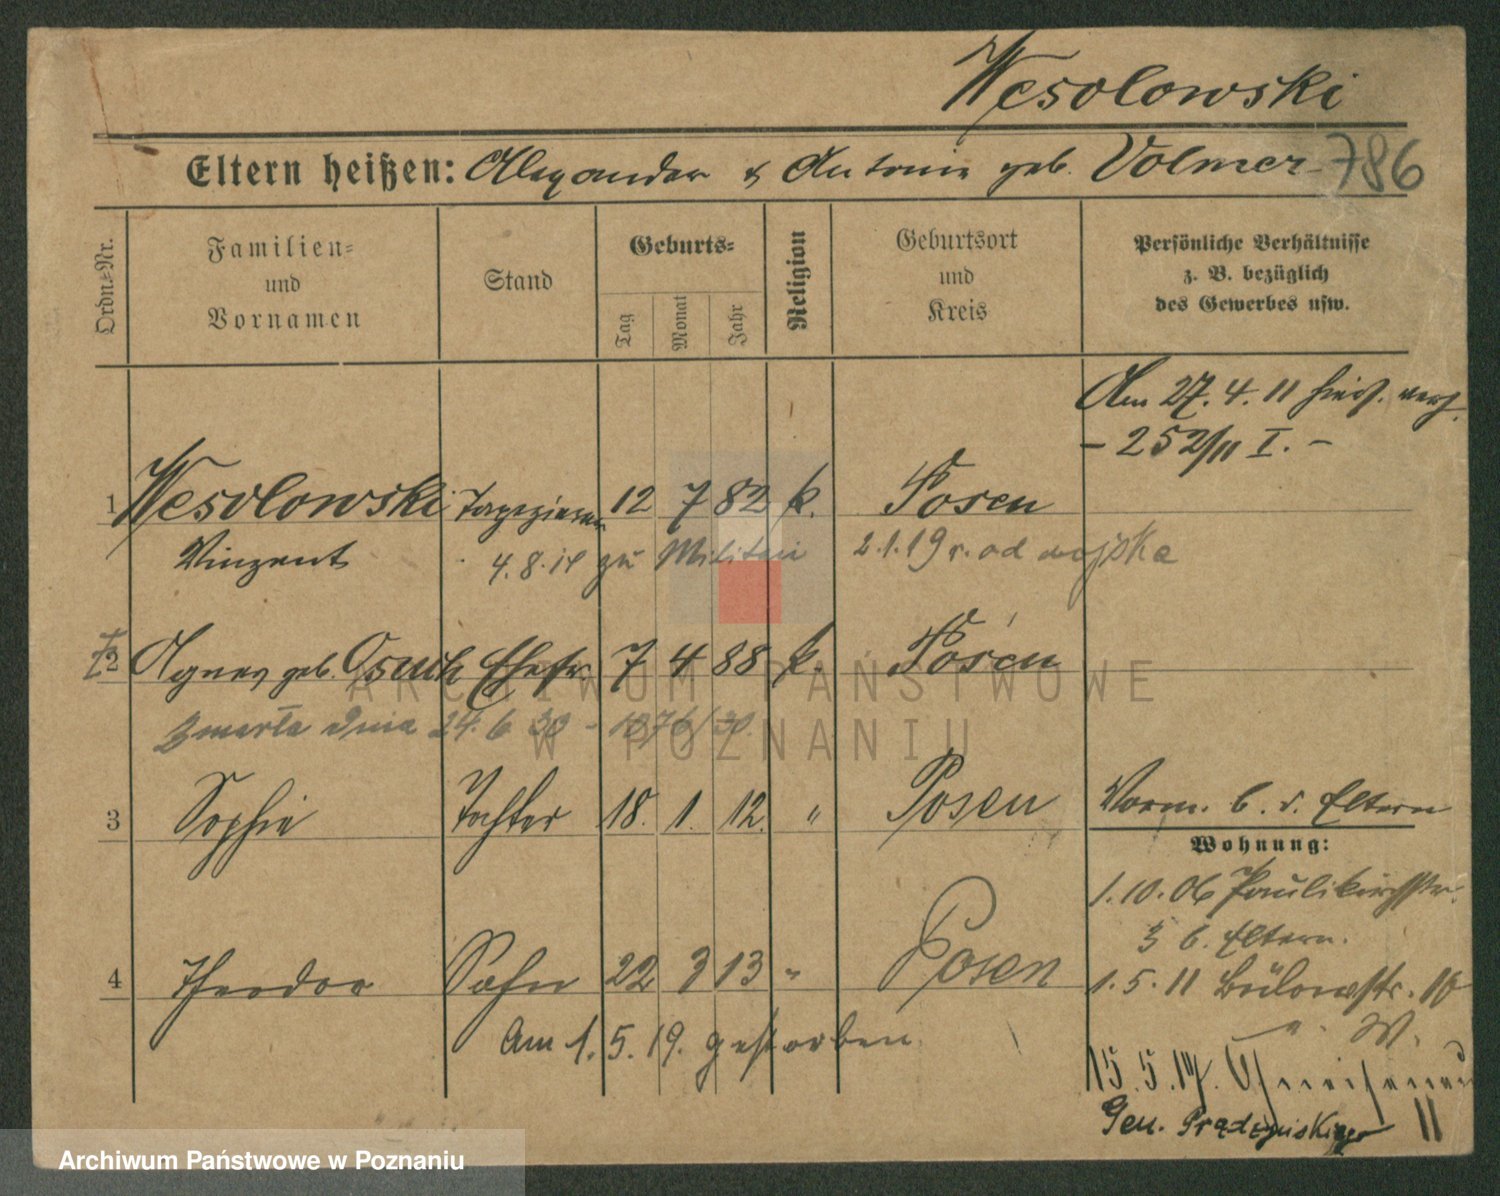 Wesolowski
Eltern heißen: Alexander & Antonie geb. Volmer
786
Ordn.-Nr.
Familien- und Vornamen
Stand
Geburts-
Tag
Monat
Jahr
Religion
Geburtsort und Kreis
Persönliche Verhältnisse
z. B. bezüglich
des Gewerbes usw.
Am 27. 4. 11 hies. verh.
- 252/11 I. -
1 Wesolowski Tapezierer 12 7 82 k. Posen
Vinzent 4. 8. 14 zu Militär 2.1.19 r. od wojska
2 Agnes geb. Osuch Ehefr. 7 4 88 k. Posen
Zmarła dnia 24. 6 30 - 1076/30.
3 Sophie Tochter 18. 1. 12. " Posen
Vorm. b. d. Eltern
Wohnung:
1. 10. 06 Paulikirchstr.
3 b. Eltern.
4 Theodor Sohn 22 3 13 " Posen
1. 5. 11 Bülowstr. 10
Am 1. 5. 19. gestorben
W.
15. 5. 17. Gneisenau
Gen. Prądzyńskiego 11
ARCHIWUM PAŃSTWOWE
W POZNANIU
Archiwum Państwowe w Poznaniu